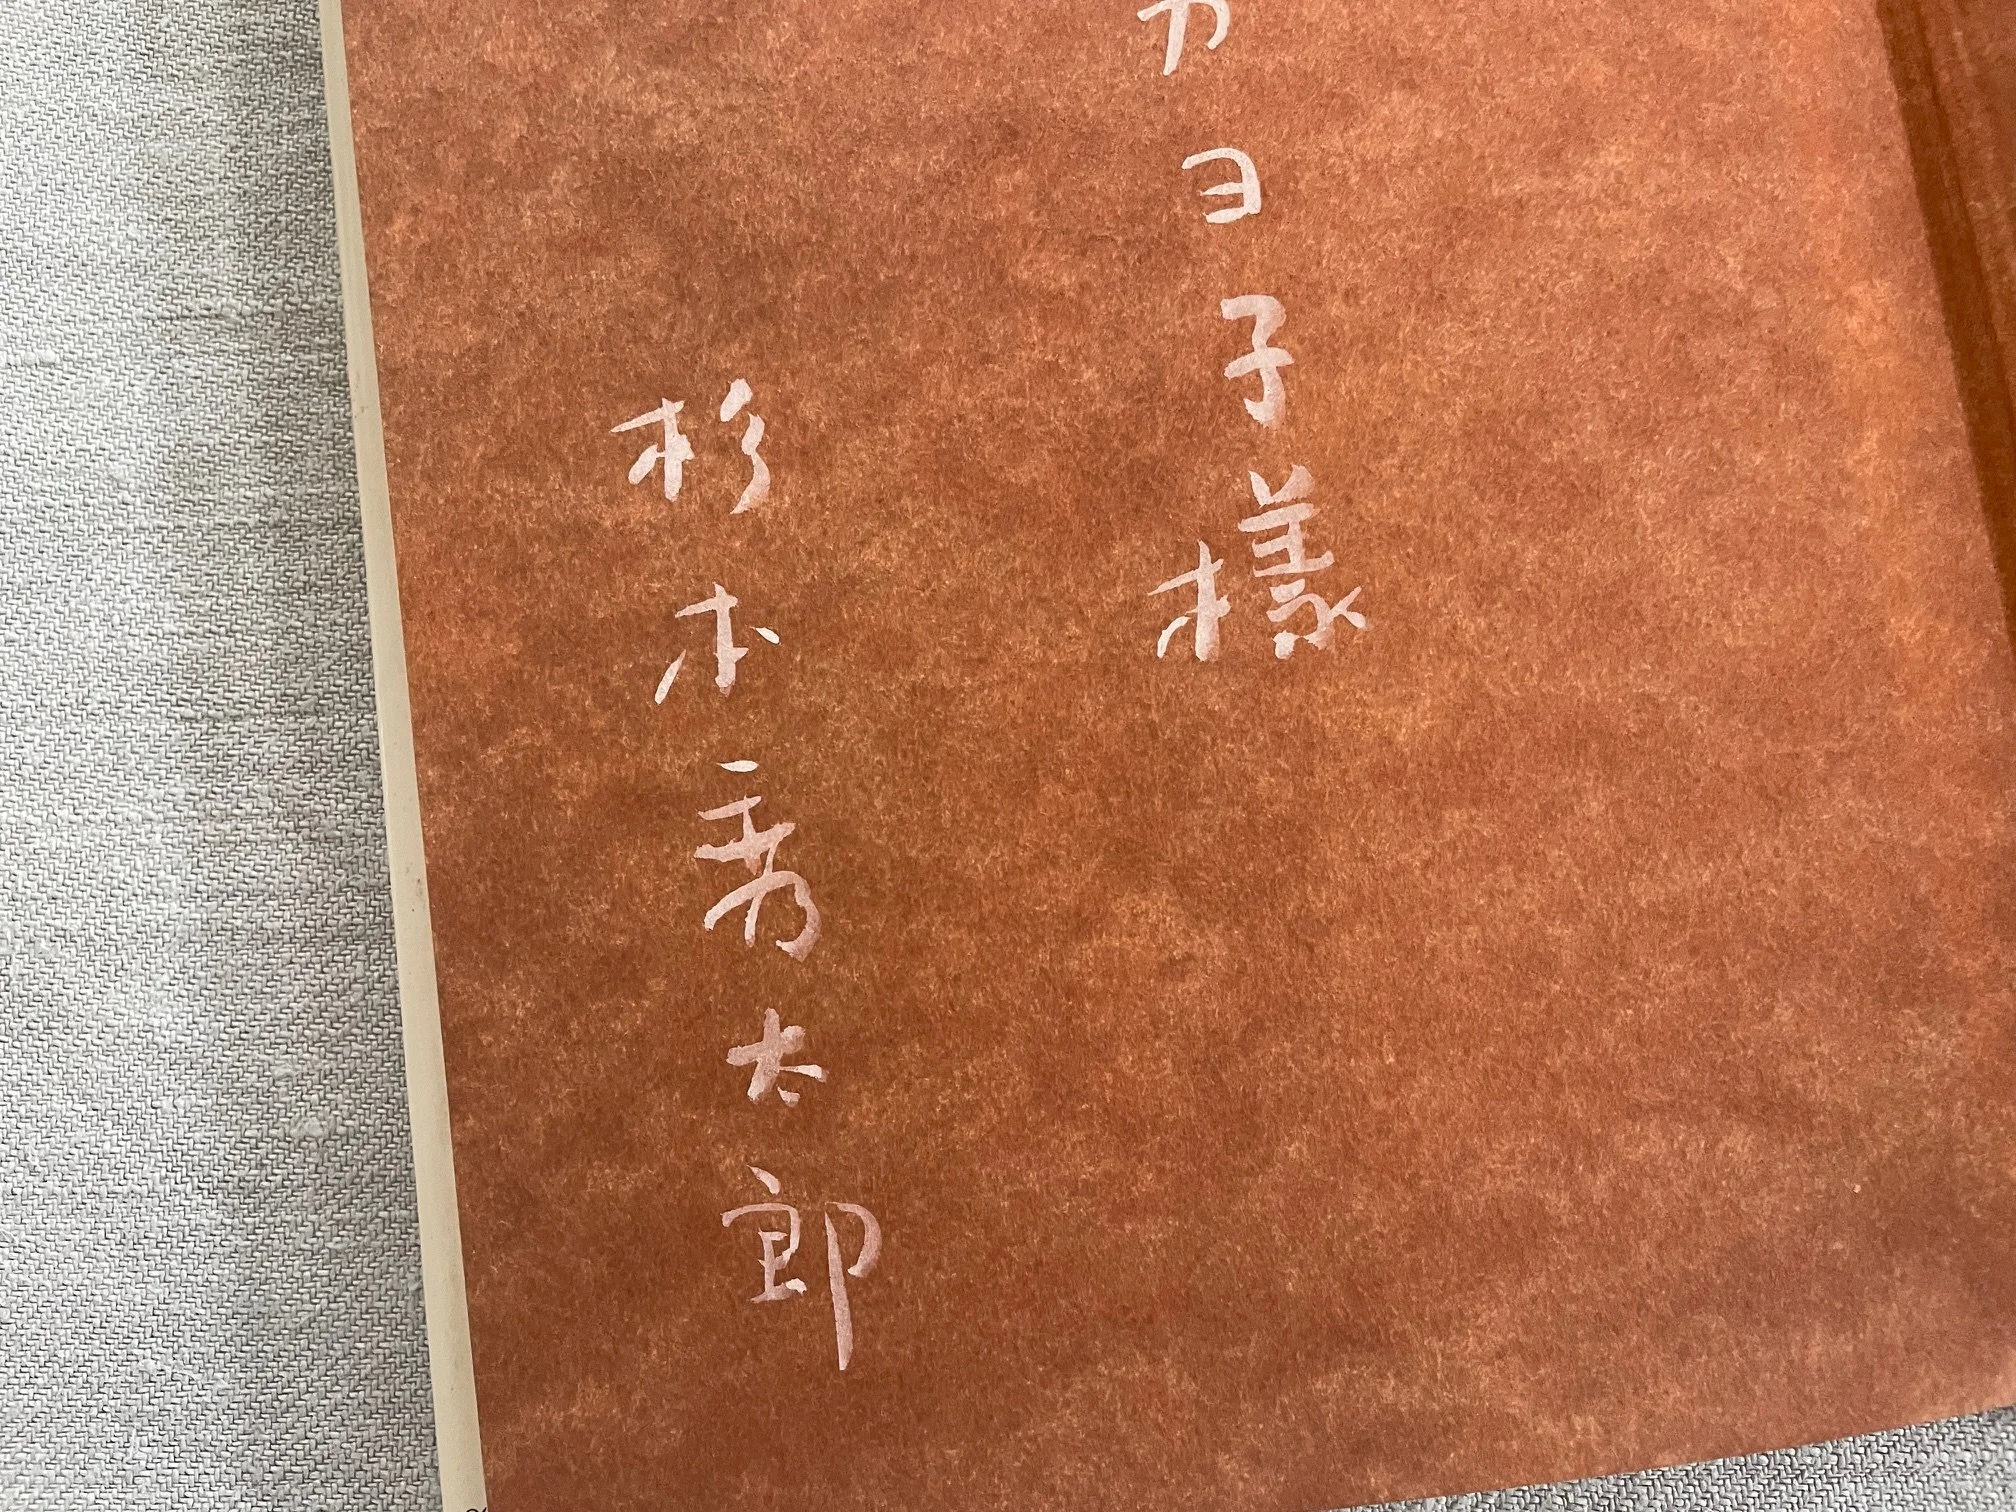 カヨ子様
杉本秀太郎